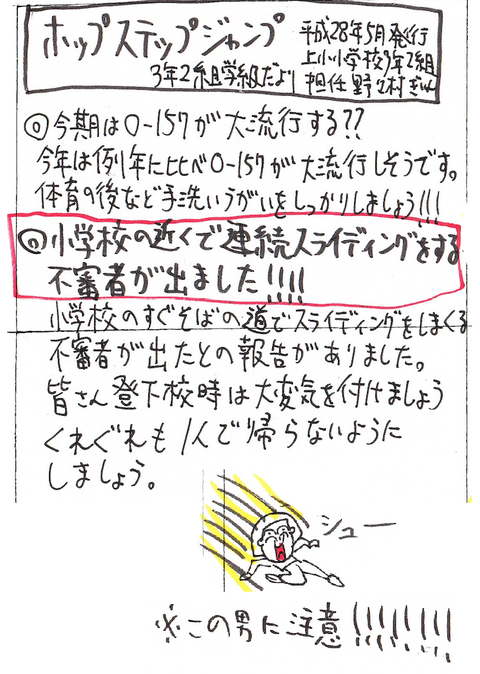 ホップステップジャンプ
3年2組学級だより
平成28年5月発行
上小小学校3年2組
担任 野々村ぎん
◎今期はO-157が大流行する??
今年は例年に比べO-157が大流行しそうです。
体育の後など手洗いうがいをしっかりしましょう!!!
◎小学校の近くで連続スライディングをする
不審者が出ました!!!!
小学校のすぐそばの道でスライディングをしまくる
不審者が出たとの報告がありました。
皆さん登下校時は大変気を付けましょう
くれぐれも1人で帰らないように
しましょう。
シュー
※この男に注意!!!!!!!!!